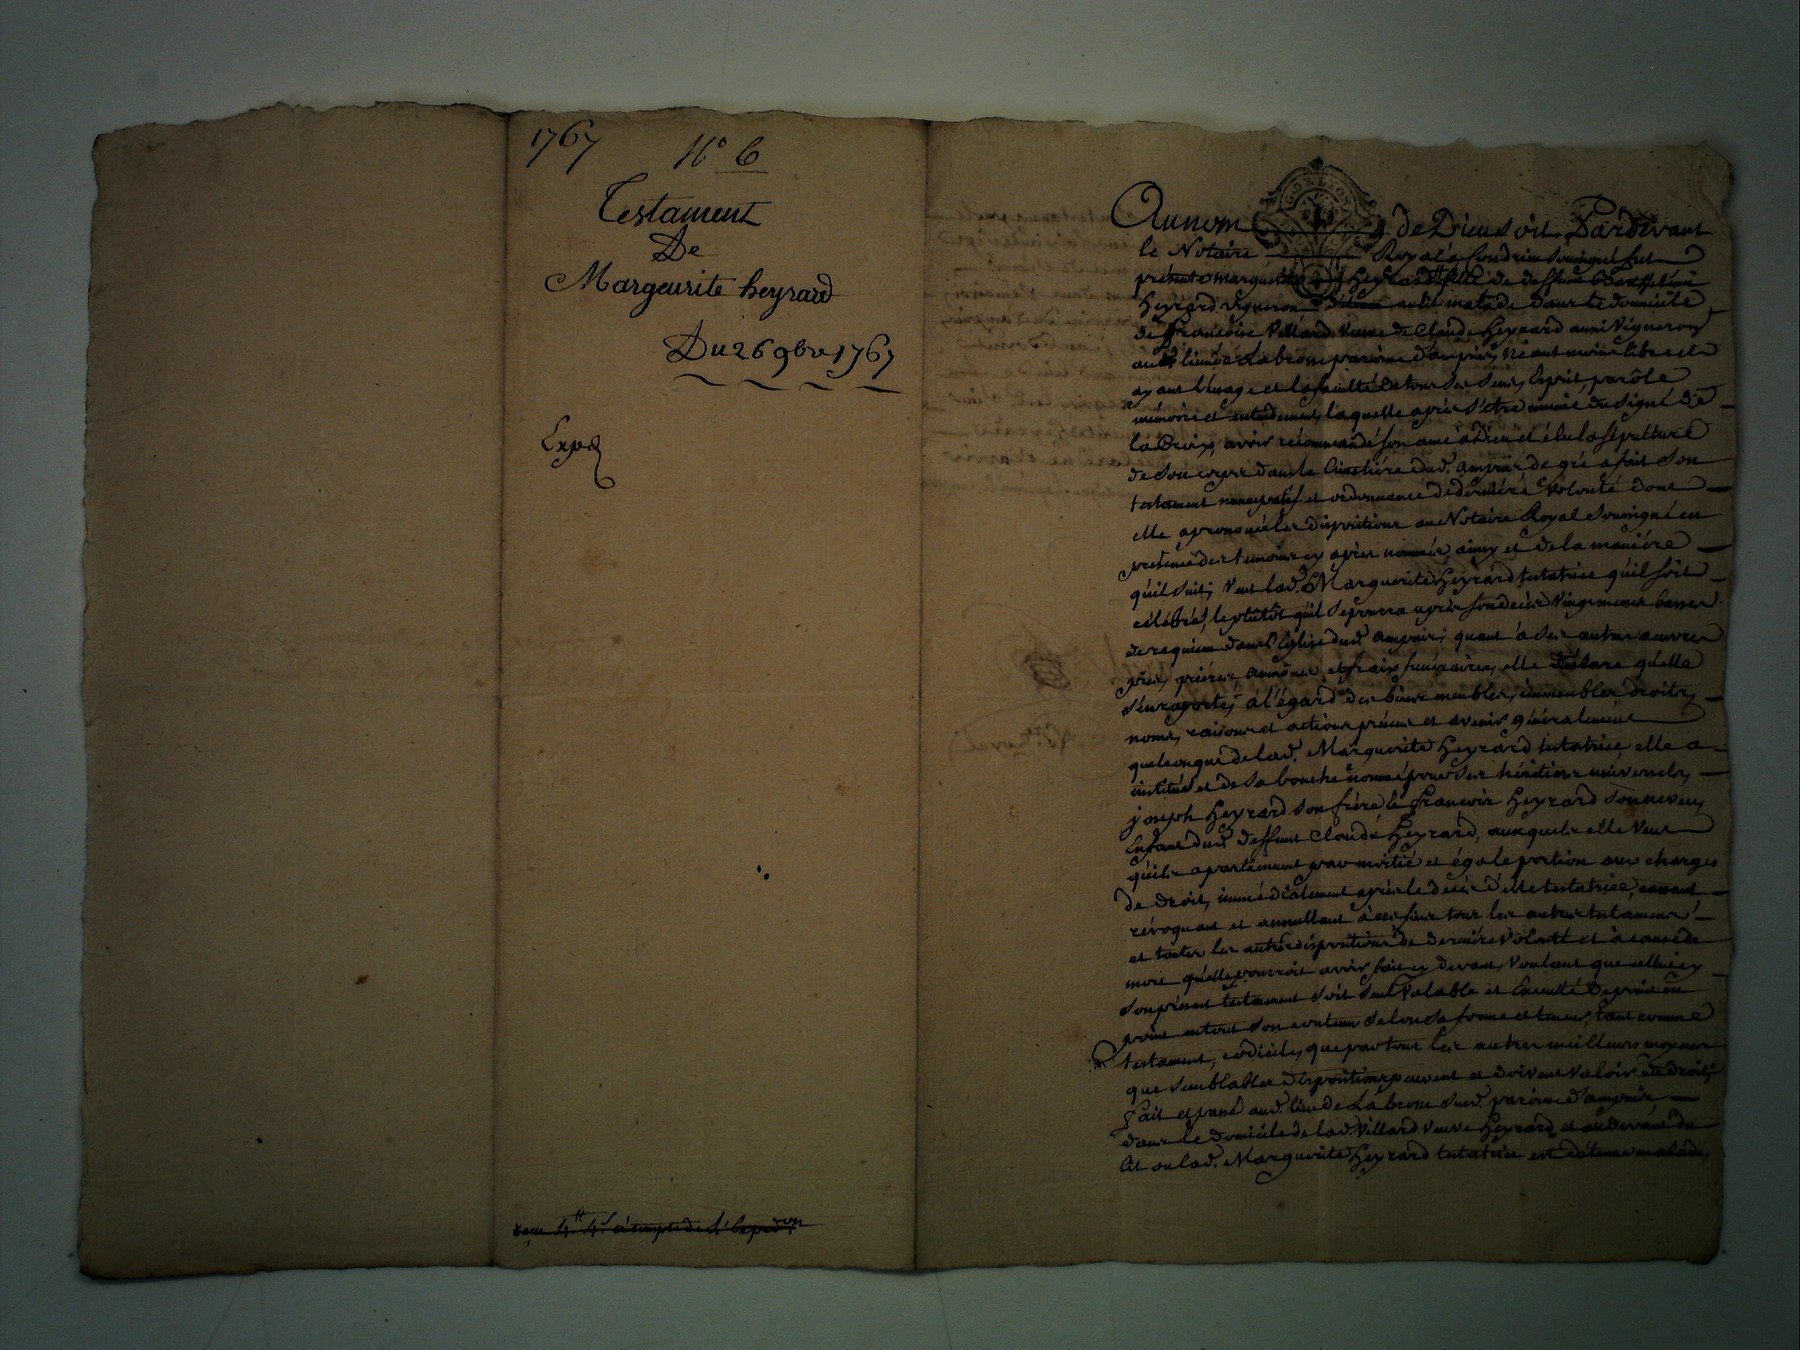 1767
N° 6
Testament
De
Margeurite heyrard
Du 26 9bre 1767
Exp.d
reçu 4.tt 4.s à compte de l'Exped.on
G. DE LYON
Au nom de Dieu soit Pardevant
le Notaire Royal à Condrieu soussigné fut
présente marguerite Heyrard fille de deffunt
Heyrard vigneron au lit malade dans le domicile
de françoise Villard veuve de Claude Heyrard aussi Vigneron
au lieu de Labrosse paroisse d'ampuis, Néant moins libre et
ayant l'usage et la faculté de tous ses sens, Esprit parôle
mémoire et entendement, laquelle après s'être munie du Signe de
la Croix, avoir recommandé son ame à Dieu et élu la sépulture
de son corps dans le Cimetière dud. ampuis de gré a fait son
testament nuncupatif et ordonnance de dernière Volonté dont
elle a prononcé les dispositions au Notaire Royal soussigné en
présence des temoins cy après nommés, ainsy et de la maniére
qu'il suit; Veut lad. Marguerite Heyrard testatrice qu'il soit
célébré, le plûtôt qu'il se pourra après son decès Vingt messes basses
de requiem dans l'Eglise dud. ampuis; quant à ses autres œuvres
pies, priéres, aumônes et frais funéraires, elle déclare qu'elle
s'en raporte; à l'égard des biens meubles, immeubles droits,
noms, raisons et actions présens et avenir généralement
quelconque de lad. Marguerite Heyrard testatrice elle a
institué et de sa bouche nommé pour ses héritiers universels,
joseph Heyrard son frére & françois Heyrard son neveu,
Enfant dud. deffunt Claude Heyrard, auxquels elle Veut
qu'ils apartiennent par moitié et égale portion aux charges
de droit, immédiatement après le décès d'elle testatrice, cassant
révoquant et annullant à ces fins tous les autres testamens
et toutes les autres dispositions de derniére Volonté et à cause de
mort qu'elle pourroit avoir fait cy devant, Voulant que celluicy
son présent testament soit seul Valable et Executé de point en
point en tout son contenu selon sa forme et teneur, tant comme
testament, codicile, que par tous les autres meilleurs moyens
que semblables dispositions peuvent et doivent valoir de droit;
Fait et passé aud. lieu de Labrosse susd. paroisse d'ampuis
dans le domicile de lad. Villard veuve Heyrard et au devant du
lit où lad. Marguerite Heyrard testatrice est détenue malade,